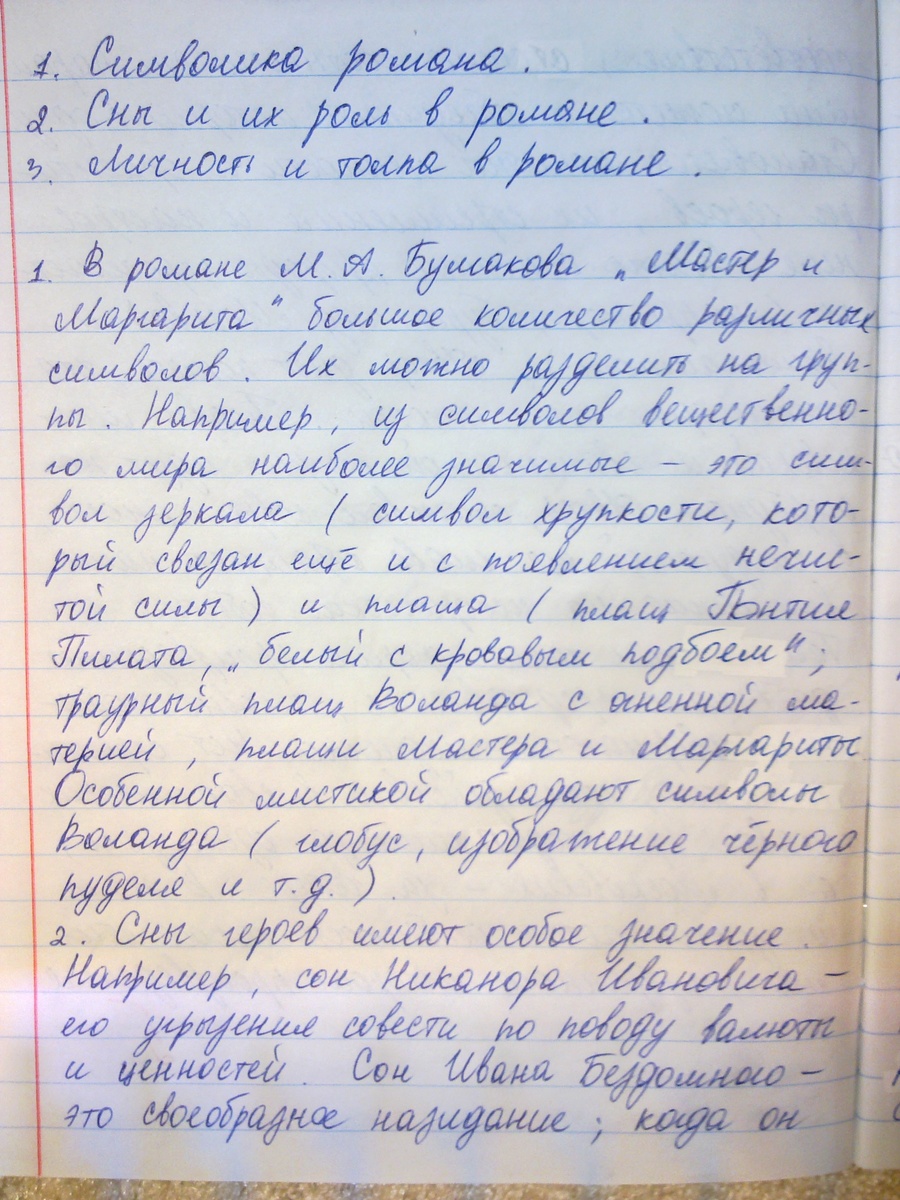 1. Символика романа.
2. Сны и их роль в романе.
3. Личность и толпа в романе.
1. В романе М. А. Бумакова „Мастер и
Маргарита" большое количество различных
символов. Их можно разделить на груп-
пы. Например, из символов вещественно-
го мира наиболее значимые – это сим-
вол зеркала (символ хрупкости, кото-
рый связан ещё и с появлением нечис-
той силы) и плаща (плащ Понтия
Пилата, „белый с кровавым подбоем";
траурный плащ Воланда с огненной ма-
терией, плащи Мастера и Маргариты
Особенной мистикой обладают символы
Воланда (глобус, изображение чёрного
пуделя и т.д.)
2. Сны героев имеют особое значение.
Например, сон Никанора Ивановича –
его угрызения совести по поводу валюты
и ценностей. Сон Ивана Бездомного –
это своеобразное назидание; когда он